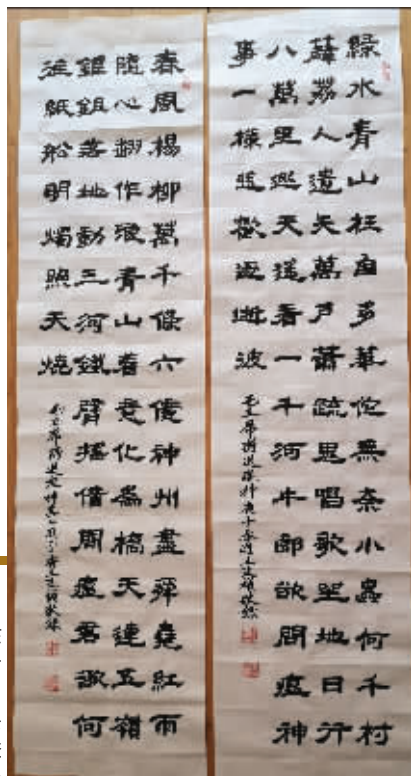 綠水青山枉自多華佗無奈小蟲何千村
薜荔人遺矢萬户蕭疏鬼唱歌坐地日行
八萬里巡天遥看一千河牛郎欲問瘟神
事一樣悲歡逐逝波
毛主席詩送瘟神
春風楊柳萬千條六億神州盡舜堯紅雨
隨心翻作浪青山着意化為橋天連五嶺
銀鉏落地動三河鐵臂摇借問瘟君欲何
往紙船明燭照天燒